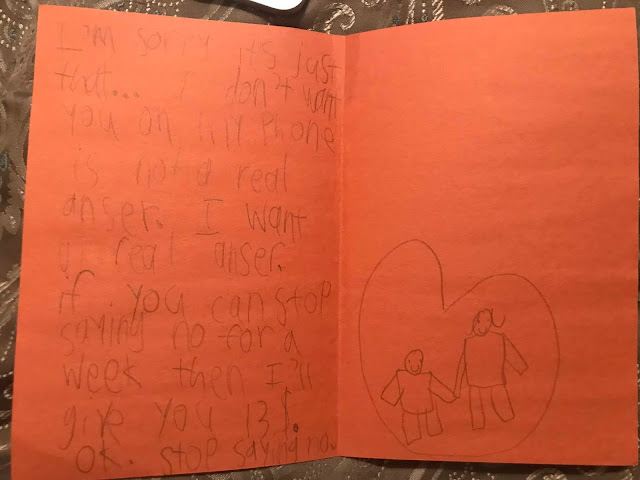 I'm sorry it's just
that... I don't want
you on my phone
is not a real
anser. I want
a real anser.
if you can stop
saying no for a
week then I'll
give you 13$.
ok. stop saying no.